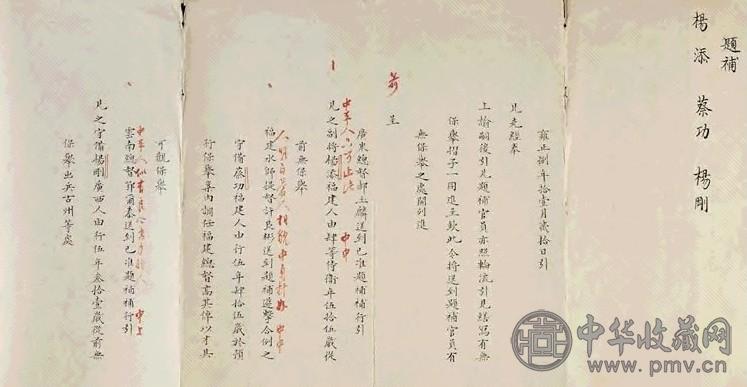 題補
楊添 蔡功 楊剛
雍正捌年拾壹月貳拾日引
見走經奉
上諭嗣後引見題補官員亦照輪流引見繕寫有無
保舉摺子一同進呈欽此今將送到題補官員有
無保舉之處開列進
呈
廣東總督郝玉麟送到已准題補補行引
見之副將楊添福建人由肆等侍衛年伍拾伍歲從
前無保舉
福建水師提督許良彬送到已准題補遊擊今例之
守備蔡功福建人由行伍年肆拾伍歲於預
行保舉案內調任福建總督高其倬以才具
可觀保舉
雲南總督鄂爾泰送到已准題補補行引
見之守備楊剛廣西人由行伍年叁拾壹歲從前無
保舉出兵古州等處
中華收藏網
www.pmv.cn